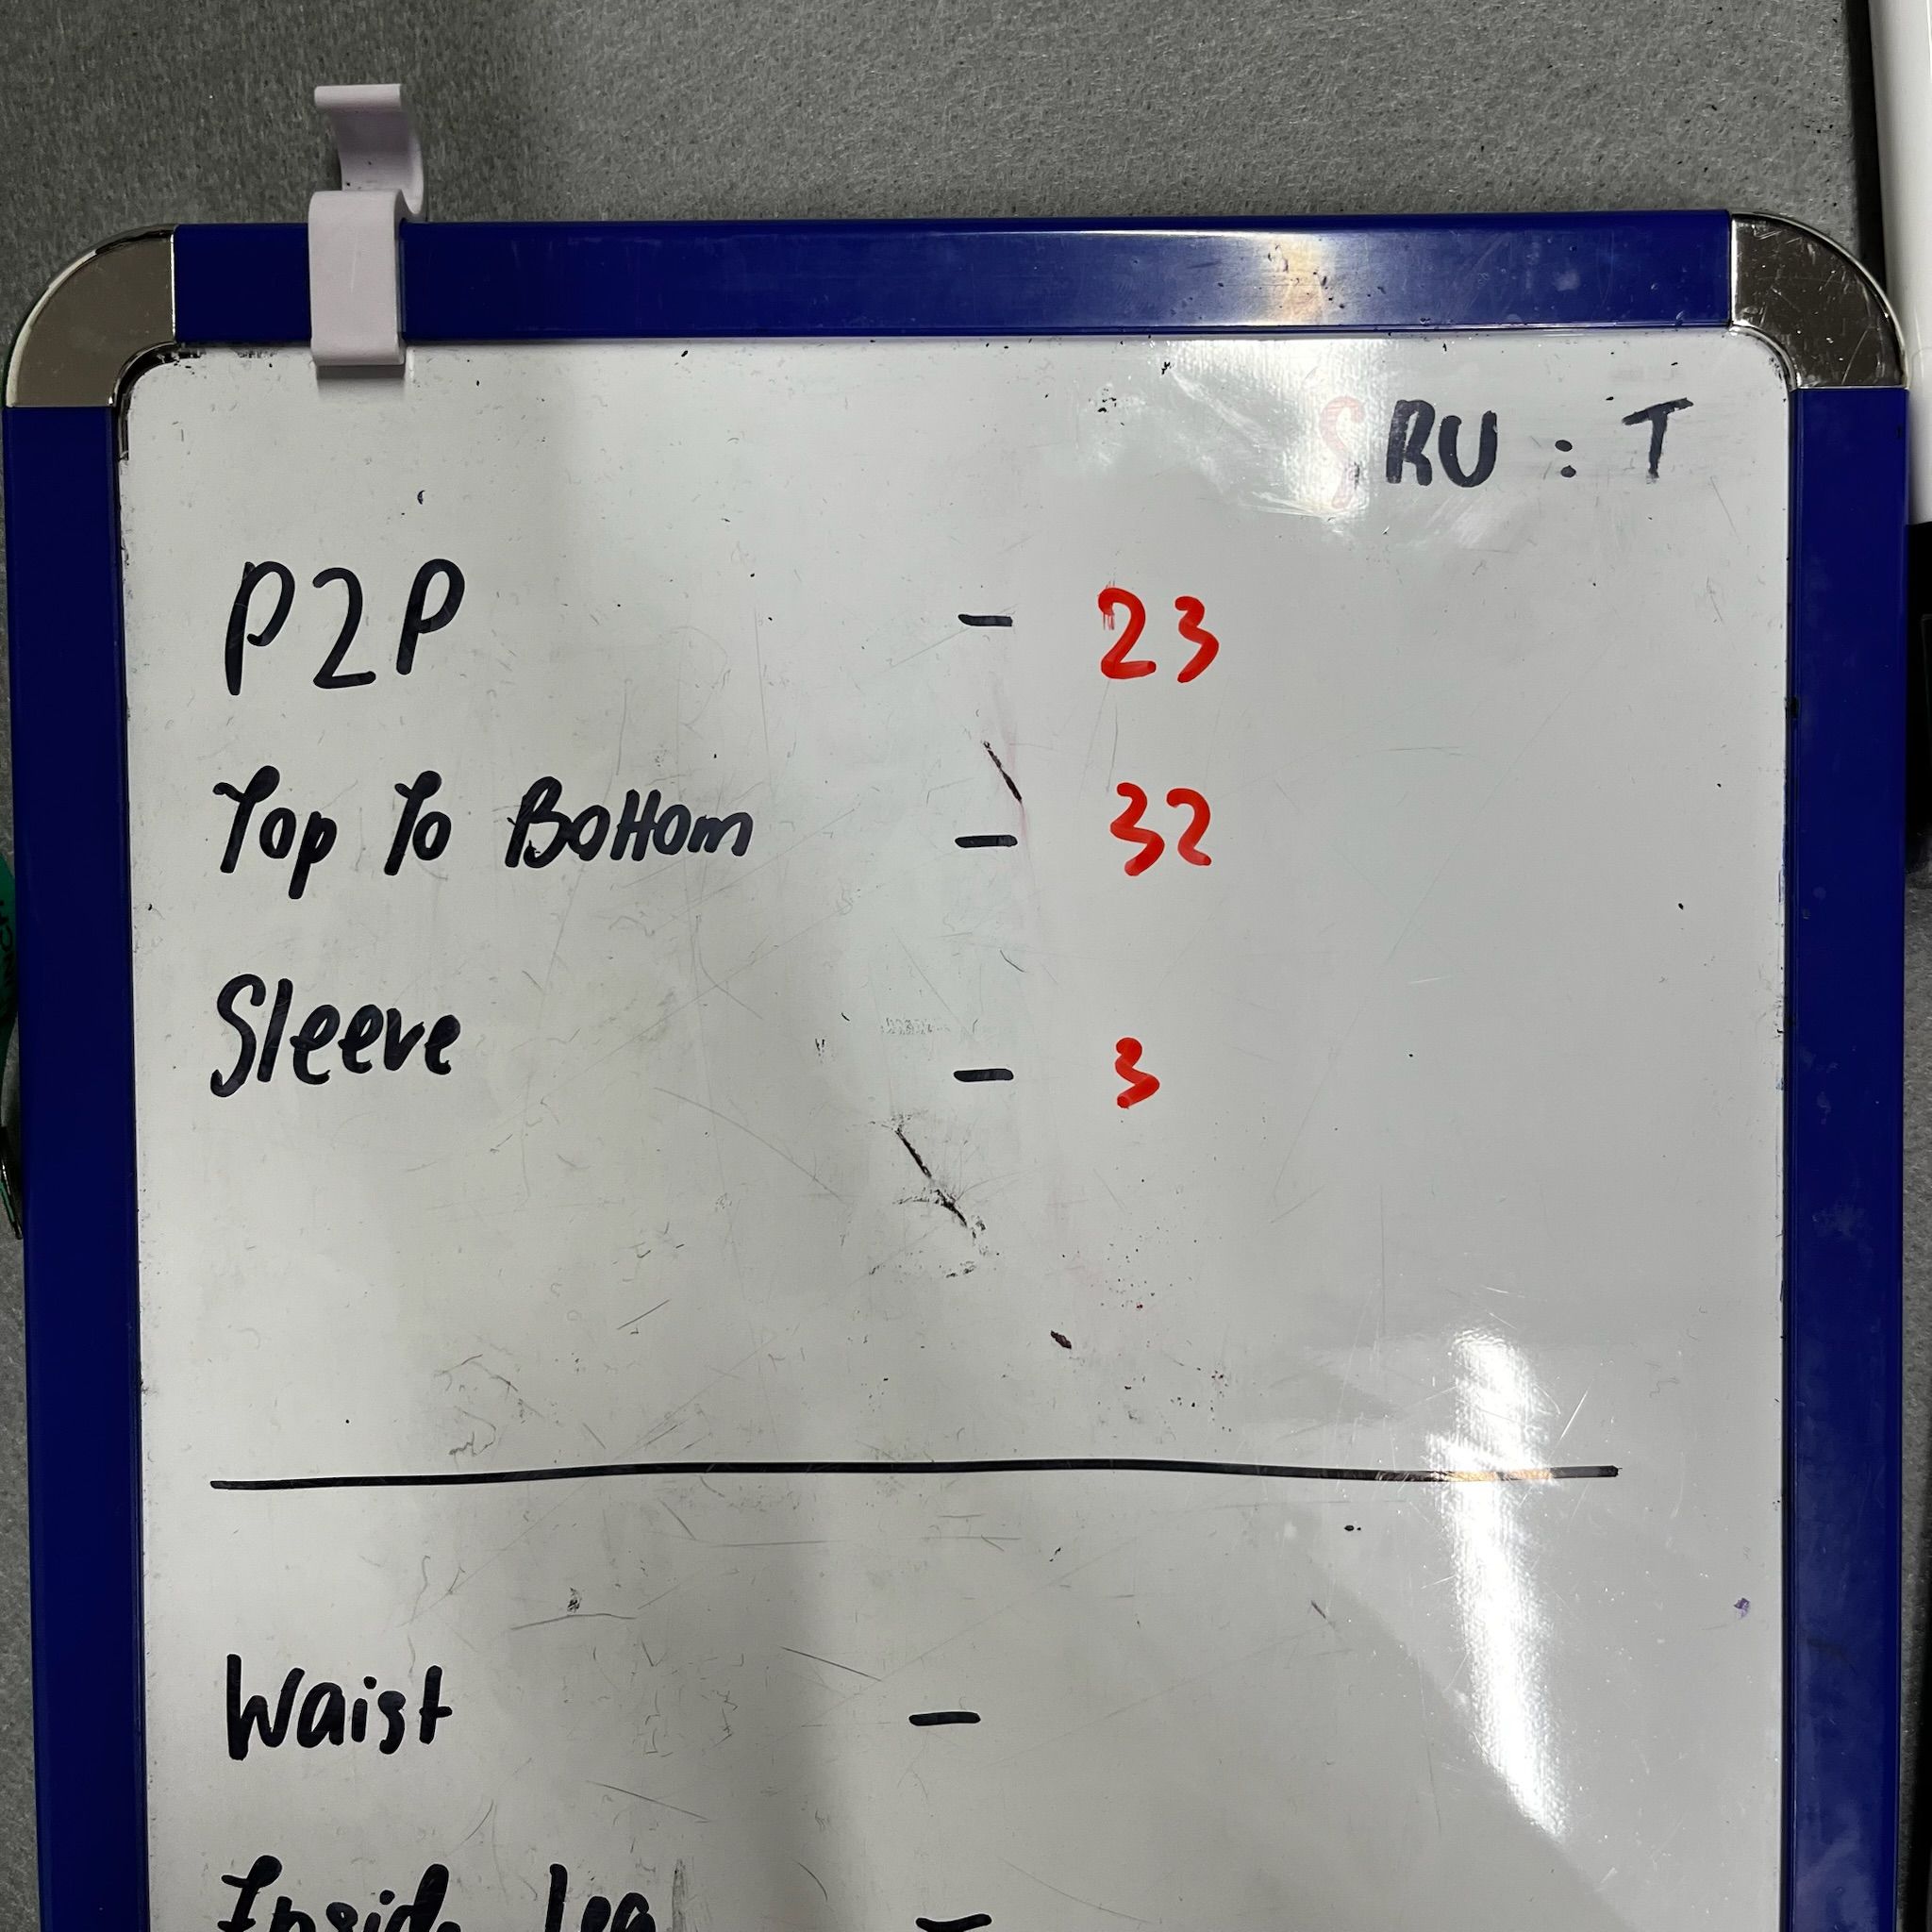 RU : T
P2P - 23
Top To Bottom - 32
Sleeve - 3
Waist -
Inside Leg -